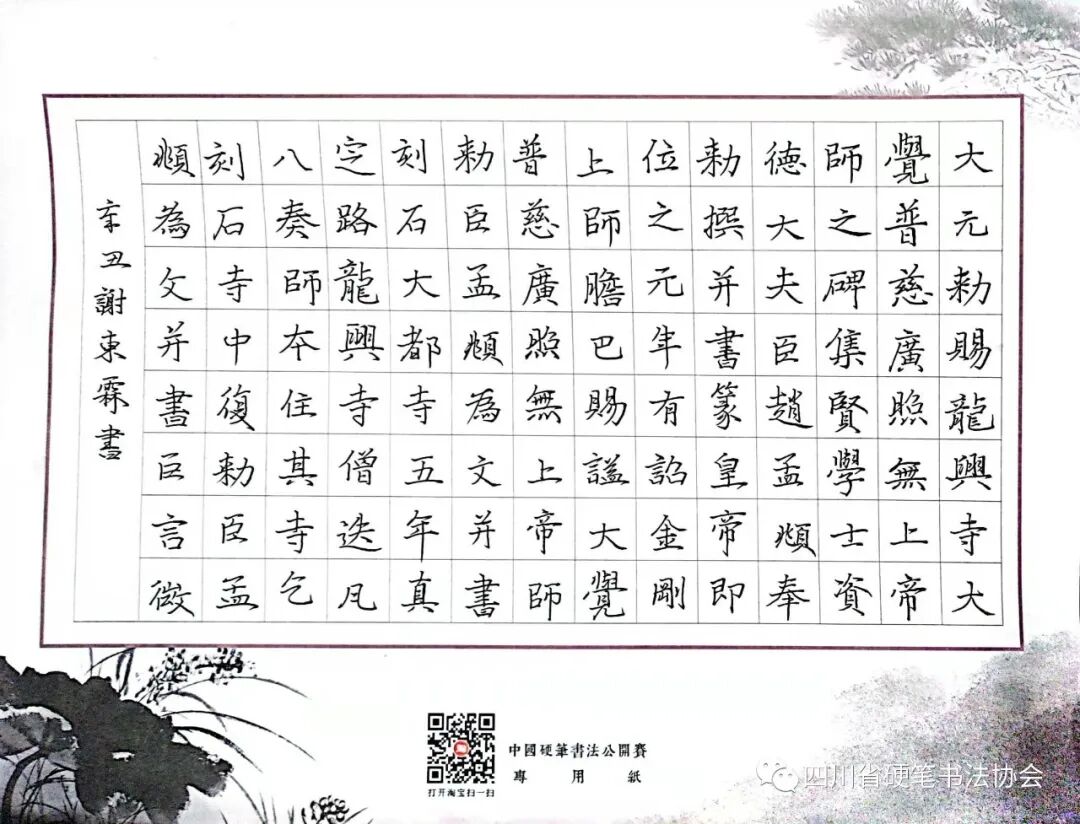 大元勑賜龍興寺大
覺普慈廣照無上帝
師之碑集賢學士資
德大夫臣趙孟頫奉
勑撰并書篆皇帝即
位之元年有詔金剛
上師膽巴賜謚大覺
普慈廣照無上帝師
勑臣孟頫為文并書
刻石大都寺五年真
定路龍興寺僧迭凡
八奏師本住其寺乞
刻石寺中復勑臣孟
頫為文并書臣言微
辛丑謝東霖書
中國硬筆書法公開賽
專用紙
打开淘宝扫一扫
四川省硬笔书法协会